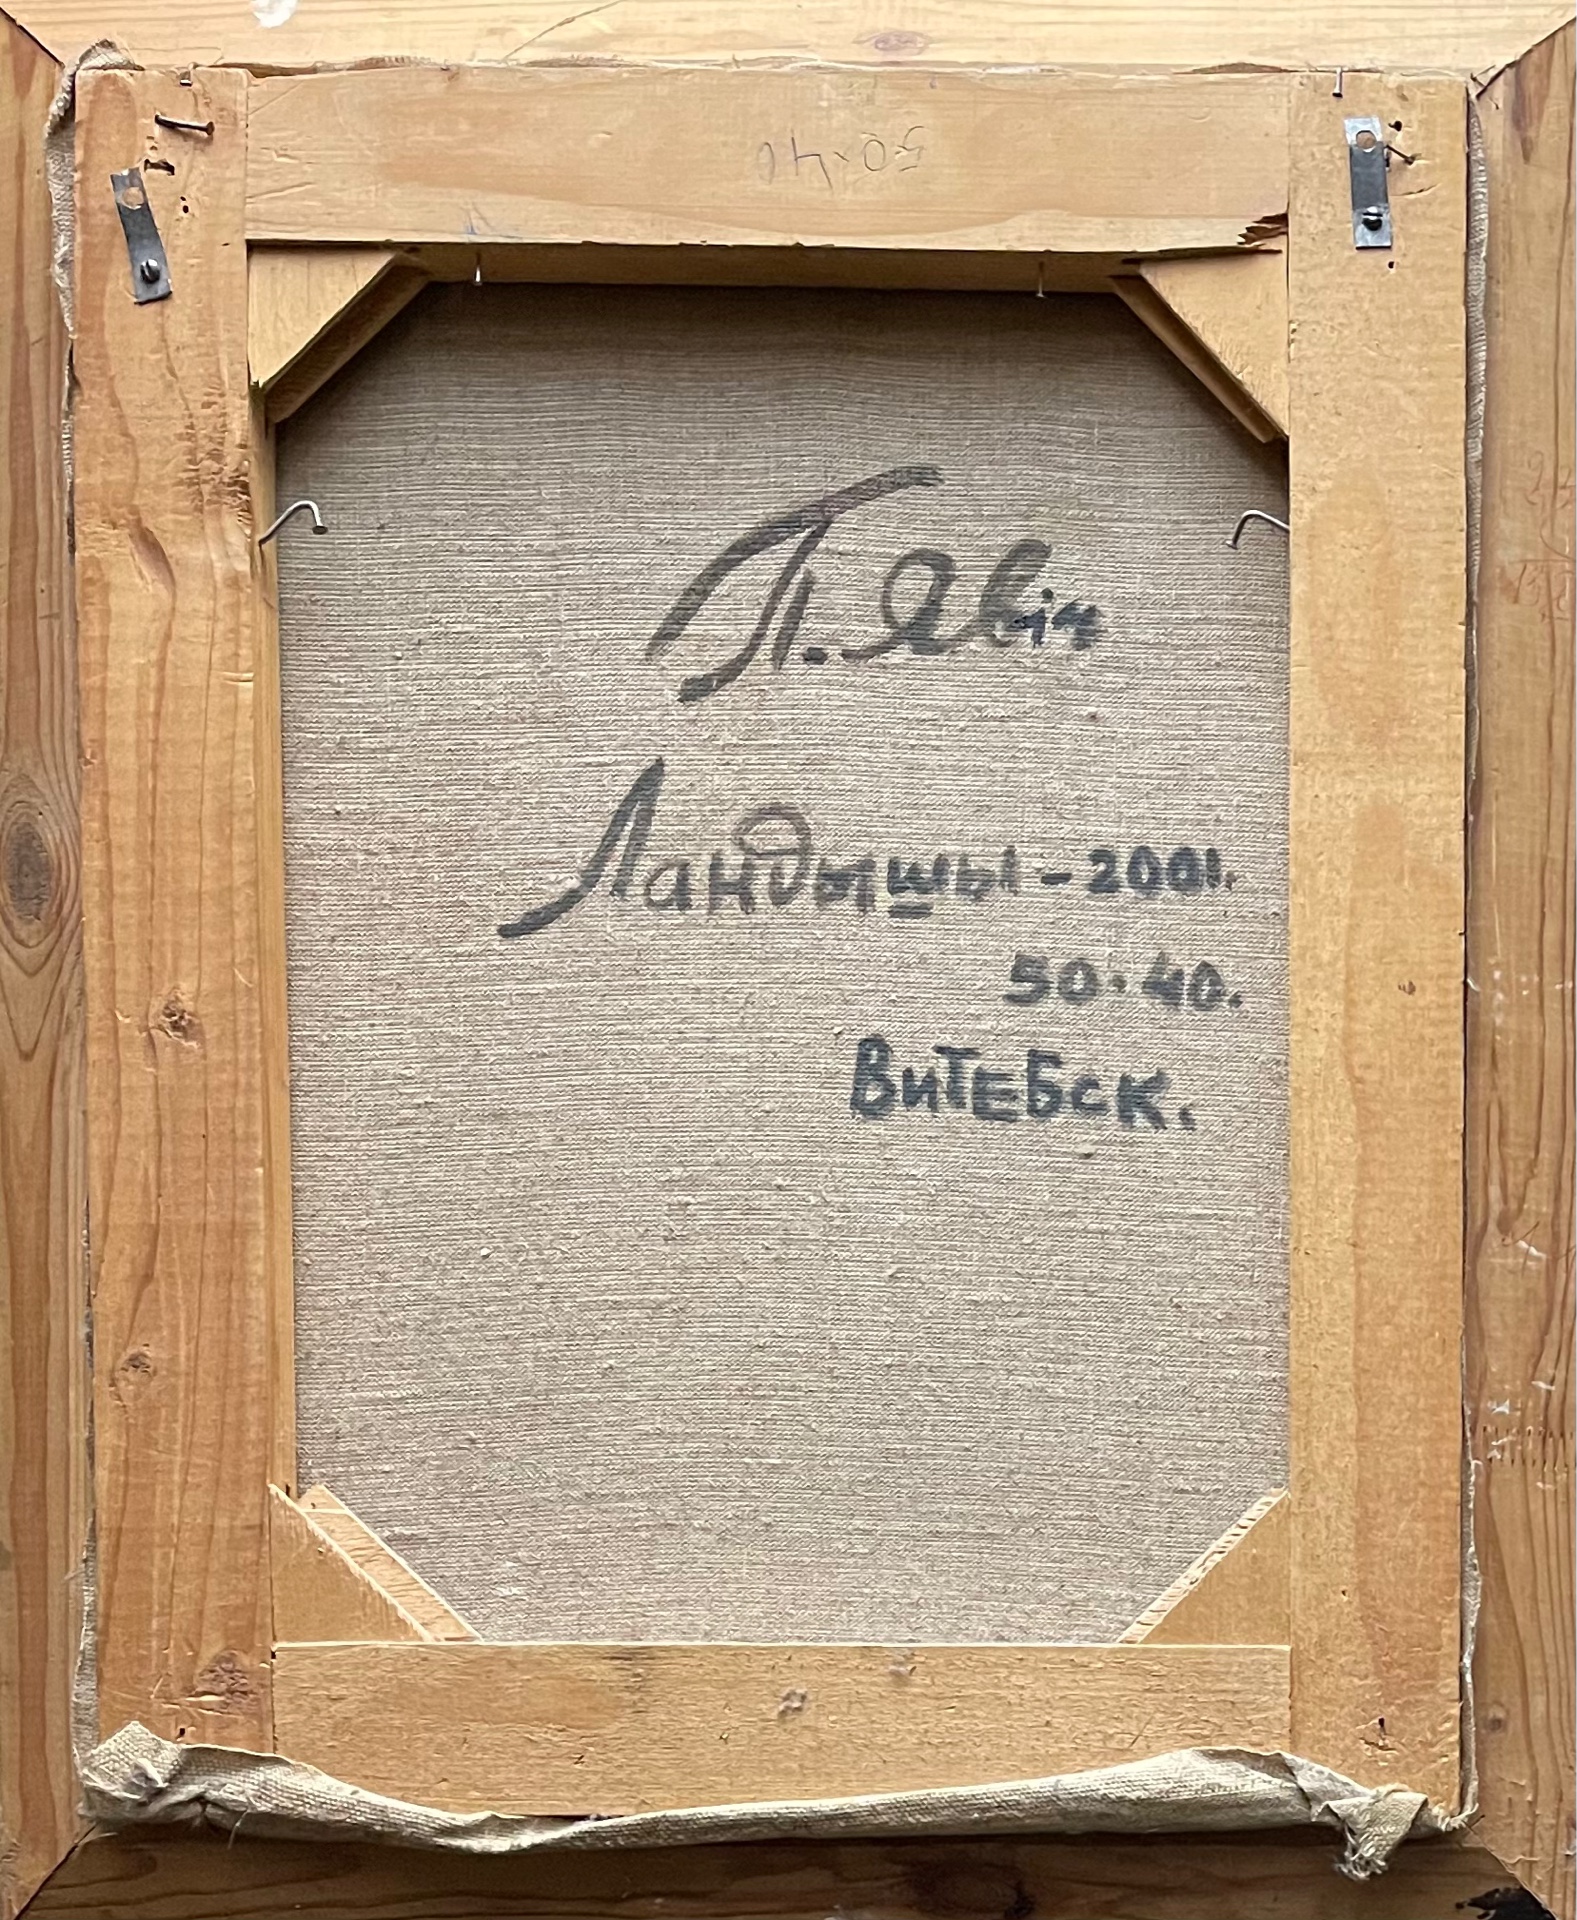 50·40
П. Явiч
Ландышы - 2001.
50·40.
ВИТЕБСК.